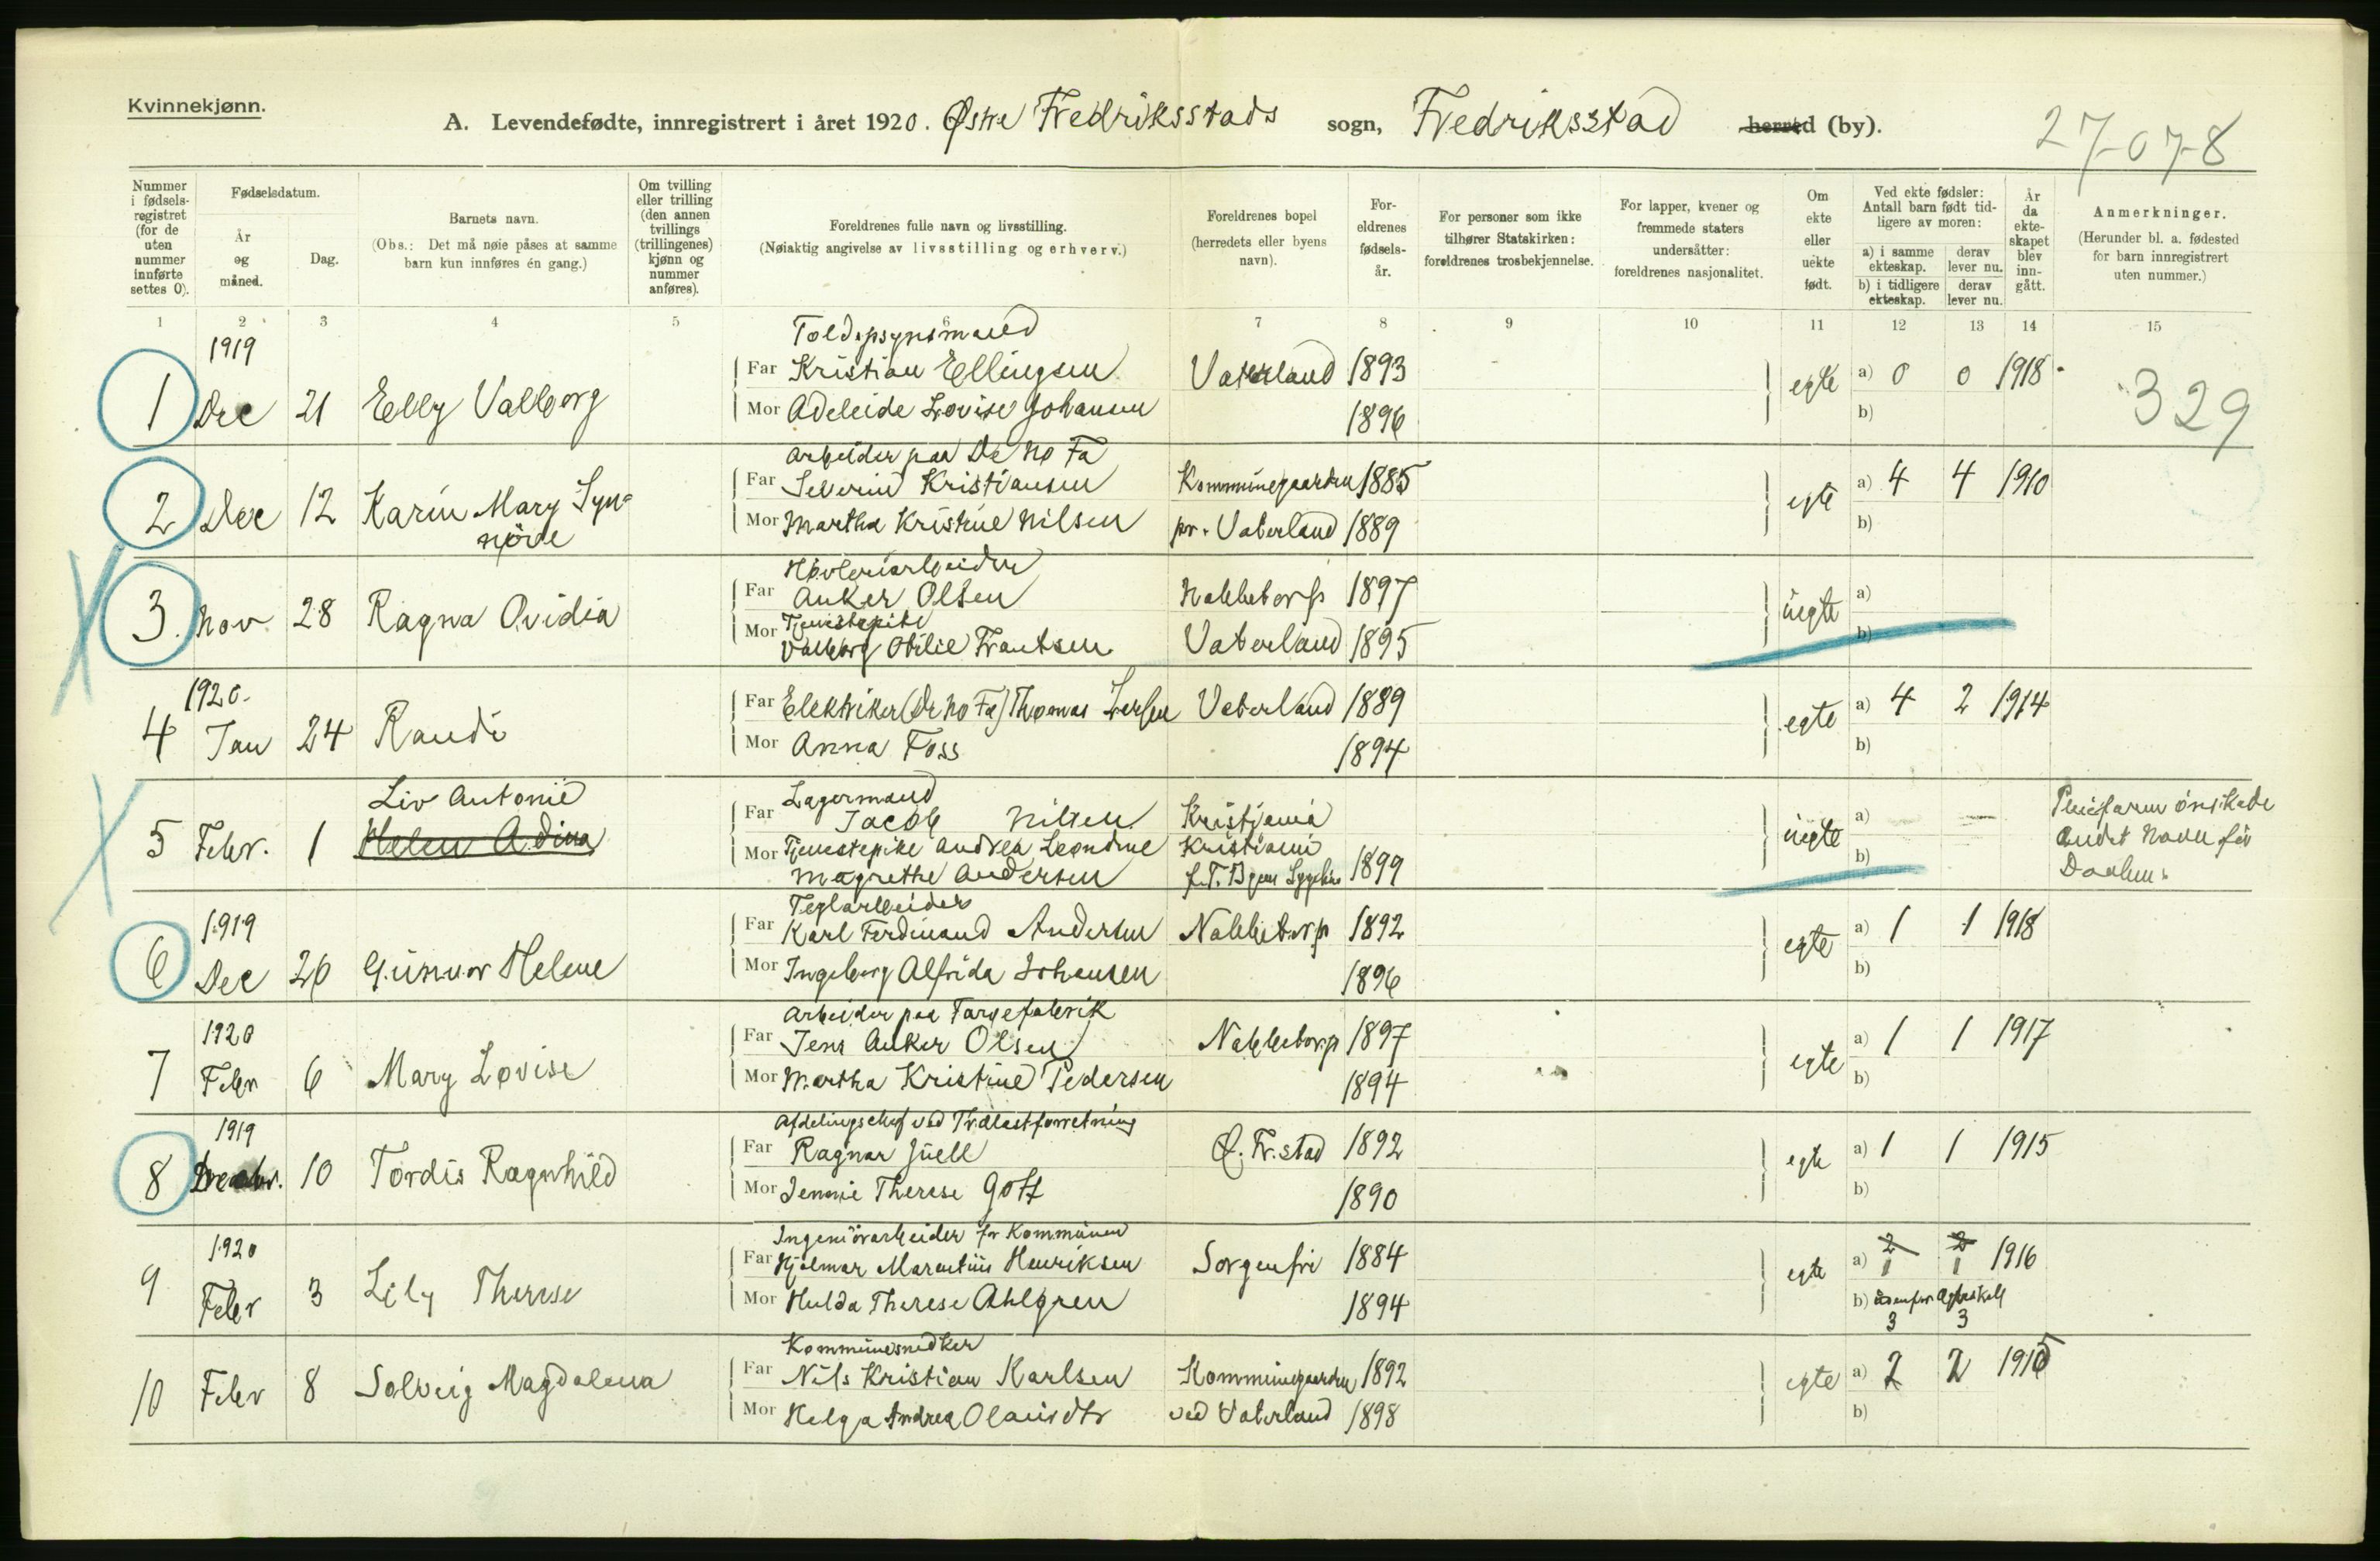 Kvinnekjønn.
A. Levendefødte, innregistrert i året 1920. Østre Fredriksstads sogn, Fredriksstad herred (by).
27-07-8
Nummer i fødsels-registret (for de uten nummer innførte settes 0).
Fødselsdatum.
År og måned.
Dag.
Barnets navn.
(Obs.: Det må nøie påses at samme barn kun innføres én gang.)
Om tvilling eller trilling (den annen tvillings (trillingenes) kjønn og nummer anføres).
Foreldrenes fulle navn og livsstilling.
(Nøiaktig angivelse av livsstilling og erhverv.)
Foreldrenes bopel (herredets eller byens navn).
For-eldrenes fødsels-år.
For personer som ikke tilhører Statskirken: foreldrenes trosbekjennelse.
For lapper, kvener og fremmede staters undersåtter: foreldrenes nasjonalitet.
Om ekte eller uekte født.
Ved ekte fødsler: Antall barn født tid-ligere av moren:
a) i samme ekteskap.
derav lever nu.
b) i tidligere ekteskap.
derav lever nu.
År da ekte-skapet blev inn-gått.
Anmerkninger.
(Herunder bl. a. fødested for barn innregistrert uten nummer.)
1 2 3 4 5 6 7 8 9 10 11 12 13 14 15
1919
Far Kristian Ellingsen Vaterland 1893 egte a) 0 0 1918
1 Dec 21 Elly Valborg
Mor Adeleide Lovise Johansen 1896 b)
329
Arbeider paa De No Fa
Far Severin Kristiansen Kommunegaarden 1885 egte a) 4 4 1910
2 Dec 12 Karin Mary Syn-
növe
Mor Martha Kristine Nilsen pr. Vaterland 1889 b)
Høvleriarbeider
Far Anker Olsen Nabbetorp 1897 uegte a)
3. Nov 28 Ragna Ovidia
Tjenestepike
Mor Valborg Otilie Frantsen Vaterland 1895 b)
1920.
Far Elektriker (De No Fa) Thomas Iversen Vaterland 1889 egte a) 4 2 1914
4 Jan 24 Randi
Mor Anna Foss 1894 b)
Liv Antonie
Lagermand
Far Jacob Nilsen Kristjania uegte a)
5 Febr. 1 Helen Adina
Mor Tjenestepike Andrea Leondine Kristiania b)
Magrethe Andersen 1899
ønskede
andet Navn før
Daaben.
1919
Teglarbeider
Far Karl Ferdinand Andersen Nabbetorp 1892 egte a) 1 1 1918
6 Dec 26 Gunvor Helene
Mor Ingeborg Alfrida Johansen 1896 b)
1920
Arbeider paa Farvefabrik
Far Jens Anker Olsen Nabbetorp 1897 egte a) 1 1 1917
7 Febr 6 Mary Lovise
Mor Martha Kristine Pedersen 1894 b)
1919
Afdelingschef ved Trælastforretning
Far Ragnar Juell Ø. Fr.stad 1892 egte a) 1 1 1915
8 10 Tordis Ragnhild
Mor Jennie Therese Gott 1890 b)
1920
Ingeniörarbeider for Kommunen
Far Hjalmar Marentius Henriksen Sorgenfri 1884 egte a) 2 1 2 1 1916
9 Febr 3 Lily Therese
Mor Hulda Therese Ahlgren 1894 b) udenfor Ægteskab
3 3
Kommunesnedker
Far Nils Kristian Karlsen Kommunegaarden 1892 egte a) 2 2 1915
10 Febr 8 Solveig Magdalena
Mor Helga Andrea Olausdtr ved Vaterland 1898 b)